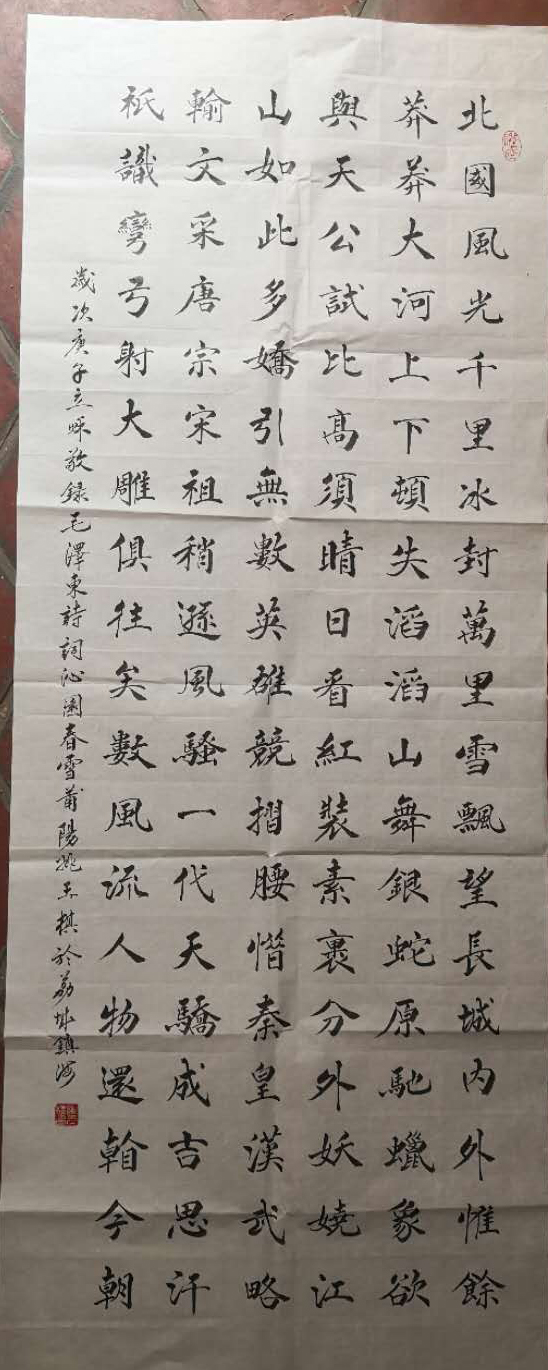 北國風光千里冰封萬里雪飄望長城内外惟餘
莽莽大河上下頓失滔滔山舞銀蛇原馳蠟象欲
與天公試比高須晴日看紅裝素裹分外妖嬈江
山如此多嬌引無數英雄競摺腰惜秦皇漢武略
輸文采唐宗宋祖稍遜風騷一代天驕成吉思汗
祇識彎弓射大雕俱往矣數風流人物還看今朝
歲次庚子立秌敬錄毛澤東詩詞沁園春雪莆陽姚玉棋於荔城鎮海